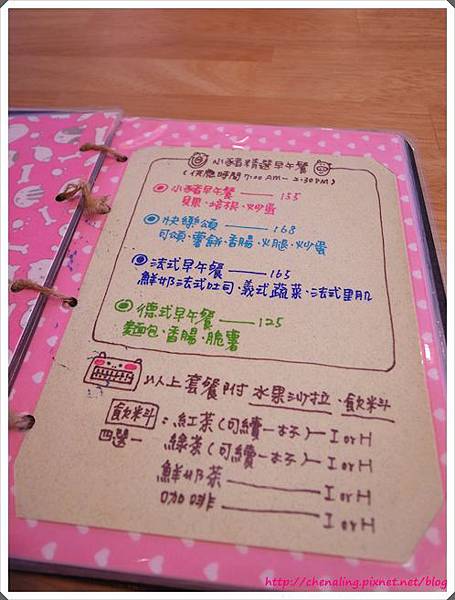 小豬精選早午餐
(供應時間 7:00 AM - 2:30 PM)
小豬早午餐 —— 155
貝果、培根、炒蛋
快樂頌 —— 168
可頌、薯餅、香腸、火腿、炒蛋
法式早午餐 —— 165
鮮奶法式吐司、義式蔬菜、法式里肌
德式早午餐 —— 125
麵包、香腸、脆薯
以上套餐附 水果沙拉、飲料
飲料 : 紅茶(可續一杯) — I or H
四選一 綠茶(可續一杯) — I or H
鮮奶茶 —— I or H
咖啡 —— I or H
http://chenaling.pixnet.net/blog